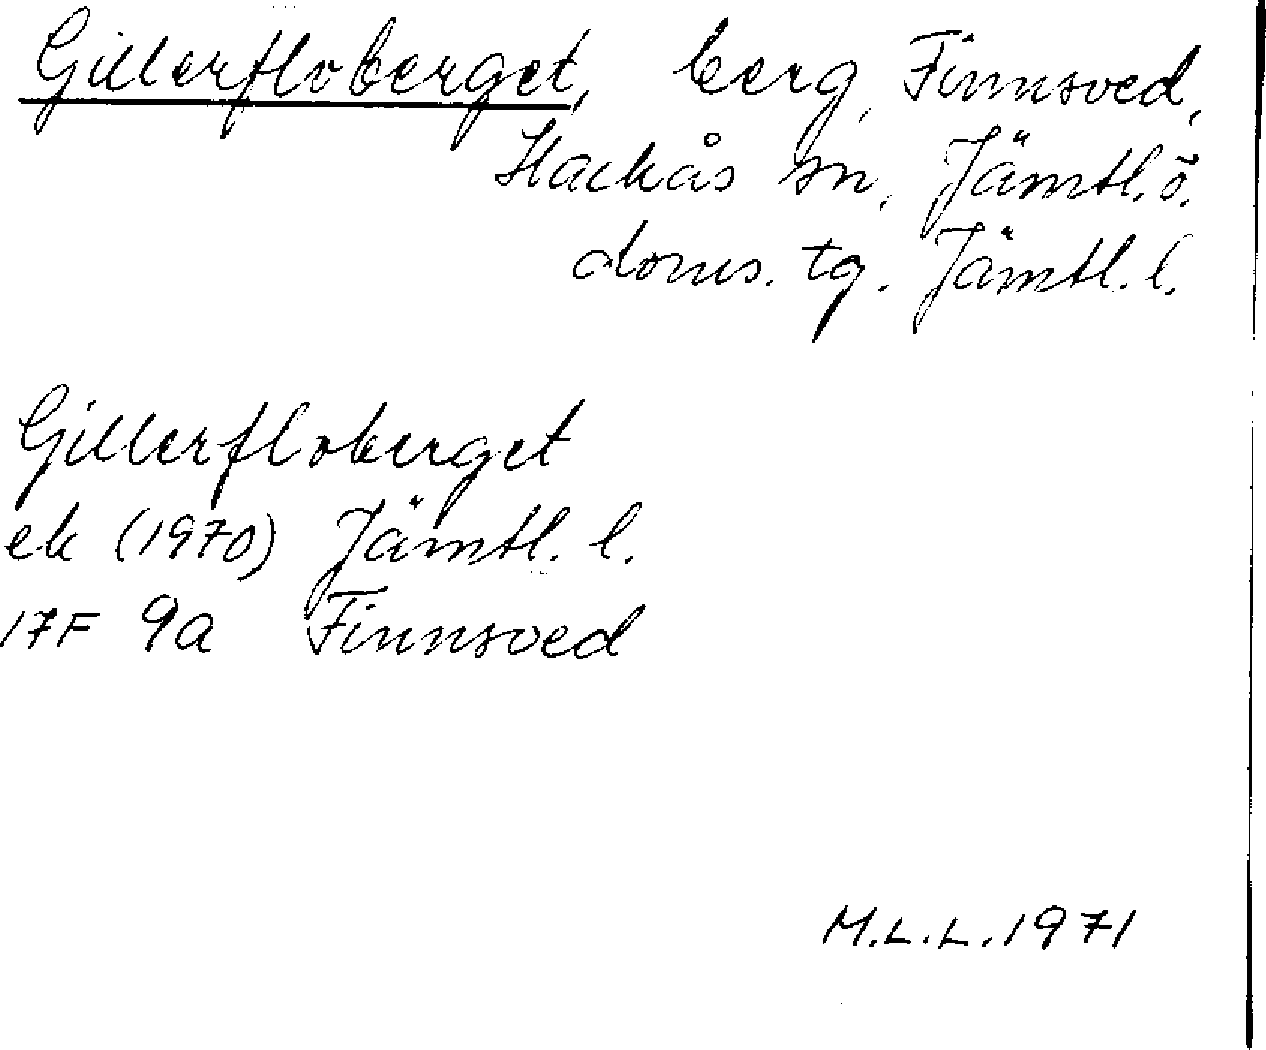 Gillerfloberget, berg, Finnsved,
Hackås sn, Jämtl. ö.
doms. tg. Jämtl. l.
Gillerfloberget
ek (1970) Jämtl. l.
17F 9a Finnsved
M.L.L. 1971